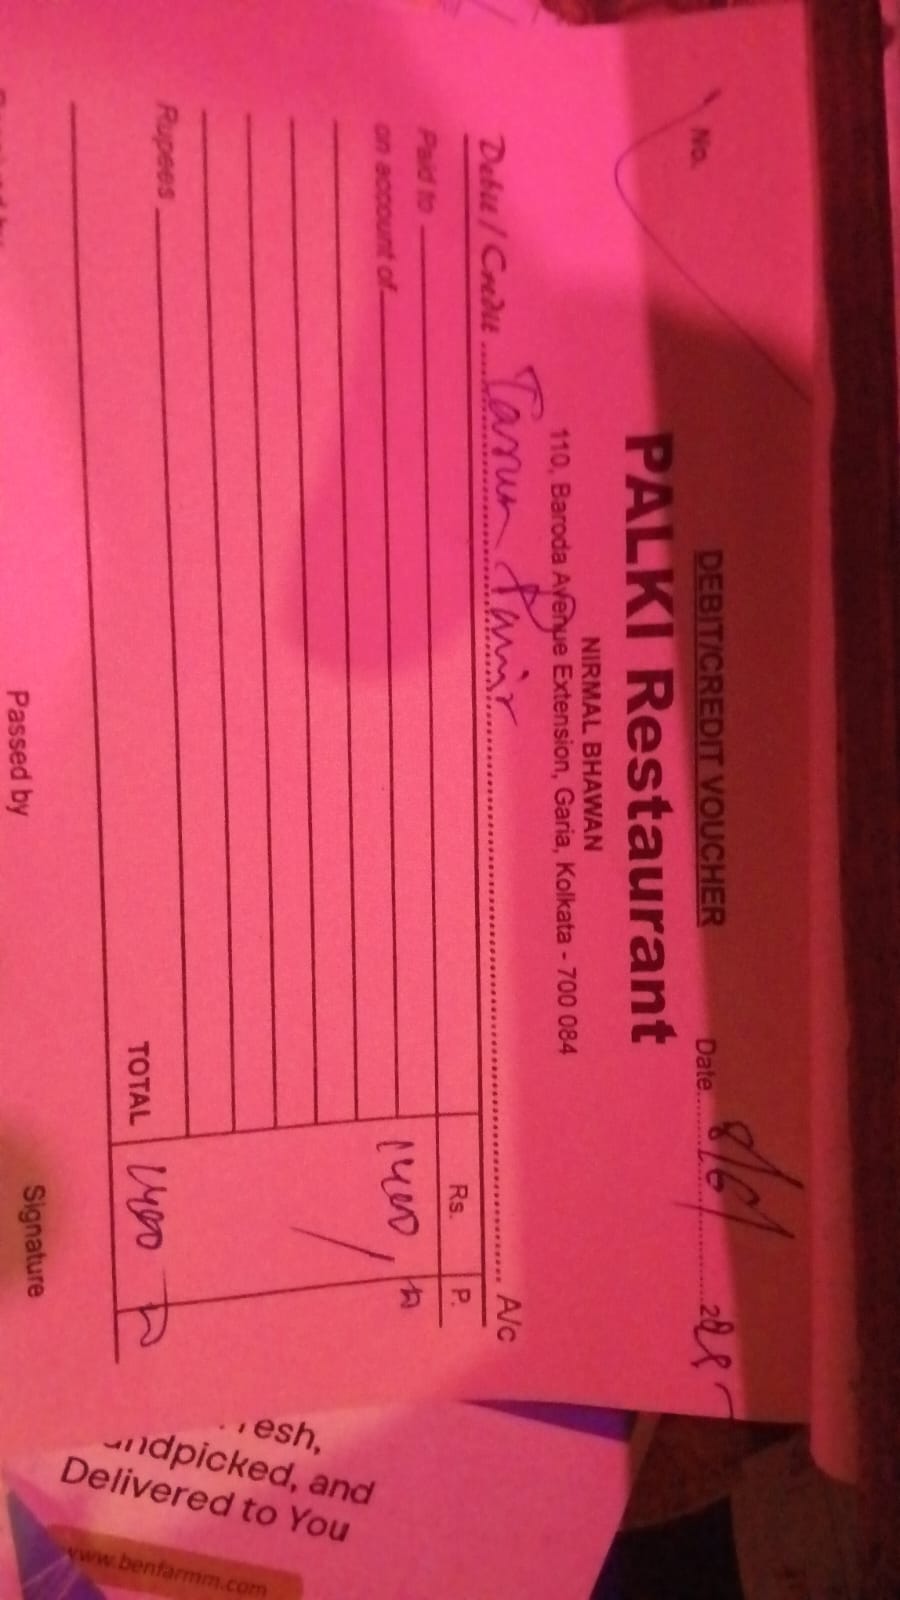 DEBIT/CREDIT VOUCHER
No. Date 8/6/ 2025
PALKI Restaurant
NIRMAL BHAWAN
110, Baroda Avenue Extension, Garia, Kolkata - 700 084
Debit / Credit Tarun A/c
Rs. P.
Paid to
on account of 1400/
Rupees
TOTAL 1400
Passed by
Signature
esh,
ndpicked, and
Delivered to You
www.benfarmm.com